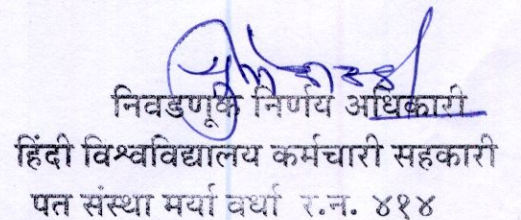 निवडणूक निर्णय अधिकारी
हिंदी विश्वविद्यालय कर्मचारी सहकारी
पत संस्था मर्या वर्धा र.न. ४१४